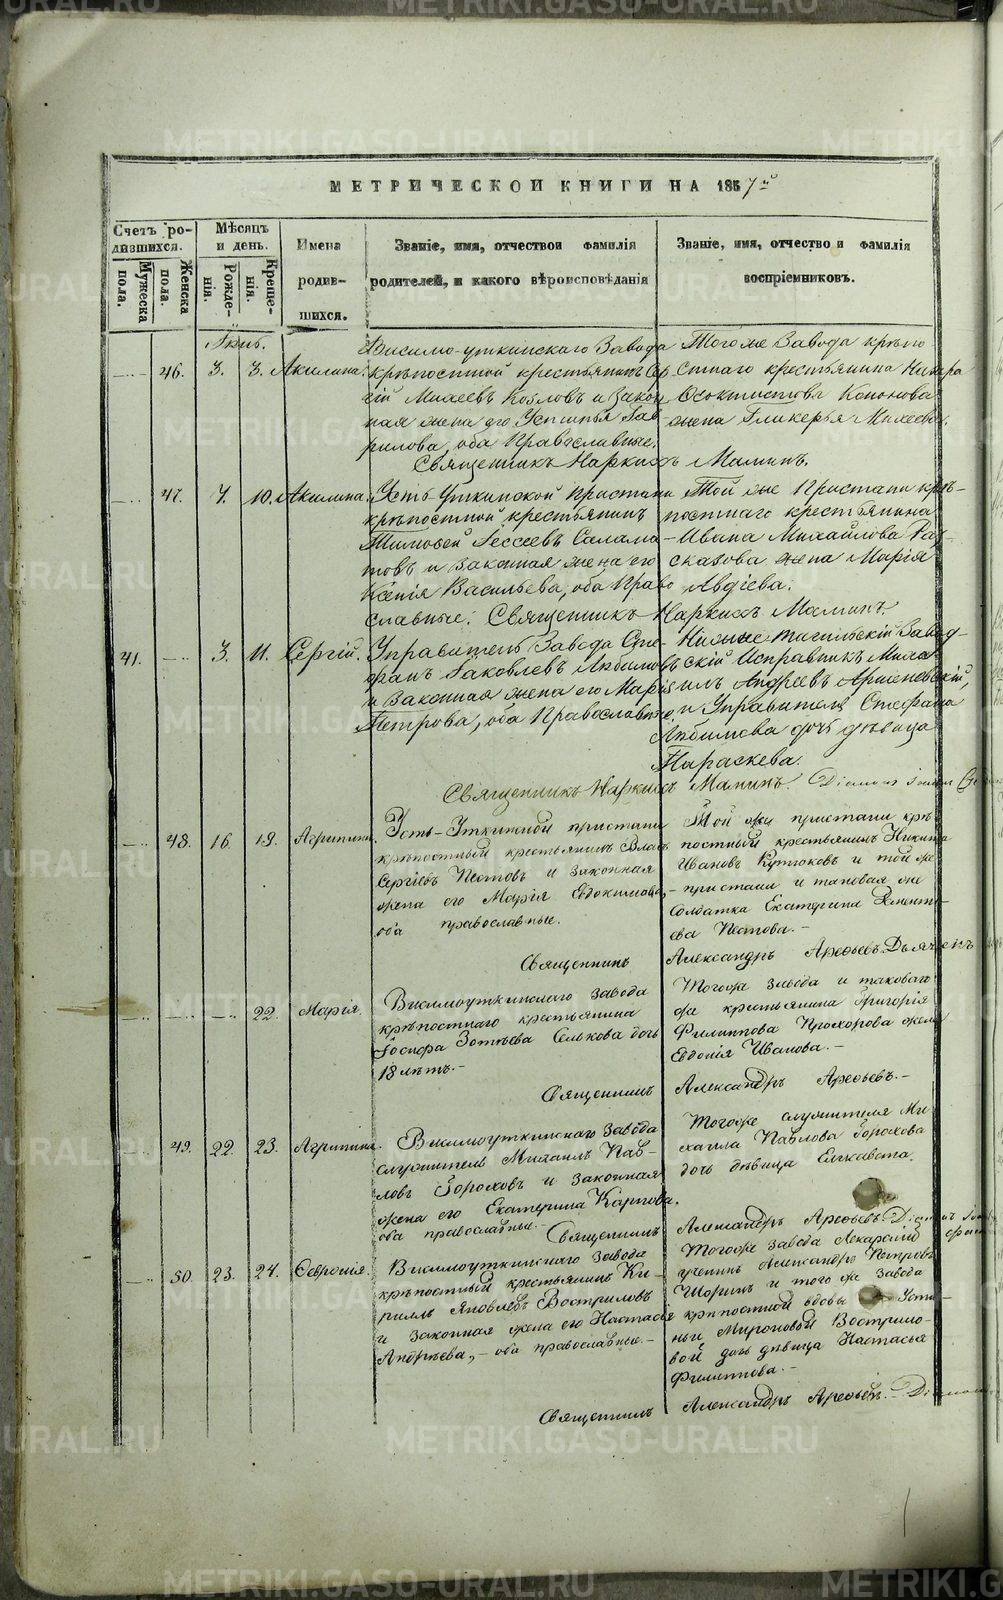 METRIKI.GASO-URAL.RU
МЕТРИЧЕСКОЙ КНИГИ НА 1857й
Счетъ ро-
дившихся.
Мужеска
пола.
Женска
пола.
Мѣсяцъ
и день.
Рожде-
нія.
Креще-
нія.
Имена
родив-
шихся.
Званіе, имя, отчествои фамилія
родителей, и какого вѣроисповѣданія
Званіе, имя, отчество и фамилія
воспріемниковъ.
Іюнь.
46. 3. 3. Акилина.
Висимо-уткинскаго Завода
крѣпостной крестьянинъ Сер-
гій Михеевъ Козловъ и закон
ная жена его Устинья Гав
рилова, оба Православные.
Тогоже Завода крѣпо
стнаго крестьянина
Ѳеоктистова Кононова
жена Гликерья Михеева.
Священникъ Наркисъ Маминъ.
47. 7. 10. Акилина.
Усть-Уткинской пристани
крѣпостной крестьянинъ
Тимофей Сала
товъ и законная жена его
Ксенія Васильева, оба Право
славные.
Той же Пристани крѣ-
постнаго крестьянина
Ивана Михайлова
жена Марія
Авдіева.
Священникъ Наркисъ Маминъ.
41. 3. 11. Сергій.
Управитель Завода Сте
фанъ Іаковлевъ Любимовъ
и Законная жена его Марія
Петрова, оба Православные
Нижне Тагильскій Завод-
скій Исправникъ Миха
илъ Андреевъ
и Управителя Стефана
Любимова дочь дѣвица
Параскева.
Священникъ Наркисъ Маминъ.
48. 16. 19. Агрипина.
Усть-Уткинской пристани
крѣпостный крестьянинъ Власъ
Сергіевъ Пестовъ и законная
жена его Марія Евдокимова,-
оба православные.
Той же пристани крѣ
постный крестьянинъ Никита
Ивановъ и той же
пристани и таковая же
Солдатка Екатерина Демент-
ева Пестова.-
Священникъ Александръ Арефьевъ.
22. Марія.
Висимоуткинскаго завода
крѣпостнаго крестьянина
Іосифа Зотѣева Селькова дочь
18 лѣтъ.-
Тогоже завода и таковаго
же крестьянина Григорія
Филиппова Прохорова жена
Евдокія Иванова.-
Священникъ Александръ Арефьевъ.-
49. 22. 23. Агрипина.
Висимоуткинскаго завода
служитель Михаилъ Пав-
ловъ Гороховъ и законная
жена его Екатерина Карпова.
оба православные.-
Тогоже служителя Ми
хаила Павлова Горохова
дочь дѣвица Елисавета.
Священникъ Александръ Арефьевъ.
50. 23. 24. Февронія.
Висимоуткинскаго завода
крѣпостный крестьянинъ Ки-
риллъ Яковлевъ Востриловъ
и законная жена его Настасія
Андрѣева,- оба православные.-
Тогоже завода Лекарскій
ученикъ Александръ Петровъ
Шоринъ и того же завода
крѣпостной вдовы Усти-
ньи Мироновой Вострило-
вой дочь дѣвица Настасья
Филиппова.-
Священникъ Александръ Арефьевъ.